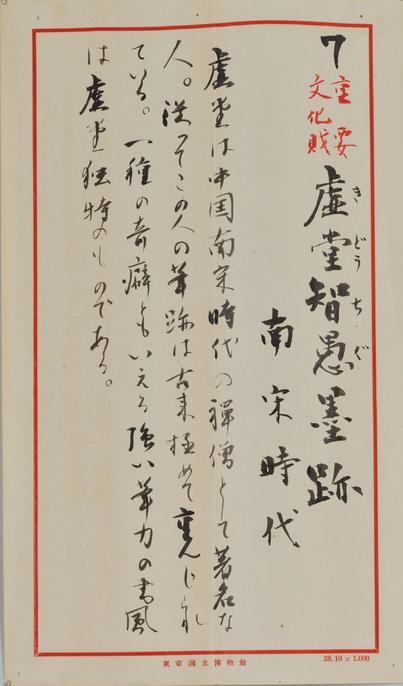 7
重要
文化財
虚堂智愚墨跡
きどうち・ぐ
南宋時代
虚堂は中国南宋時代の禅僧として著名な
人。従ってこの人の筆跡は古来極めて重んじられ
ている。一種の奇癖ともいえる強い筆力の書風
は虚堂独特のものである。
東京国立博物館
28.10×1,000